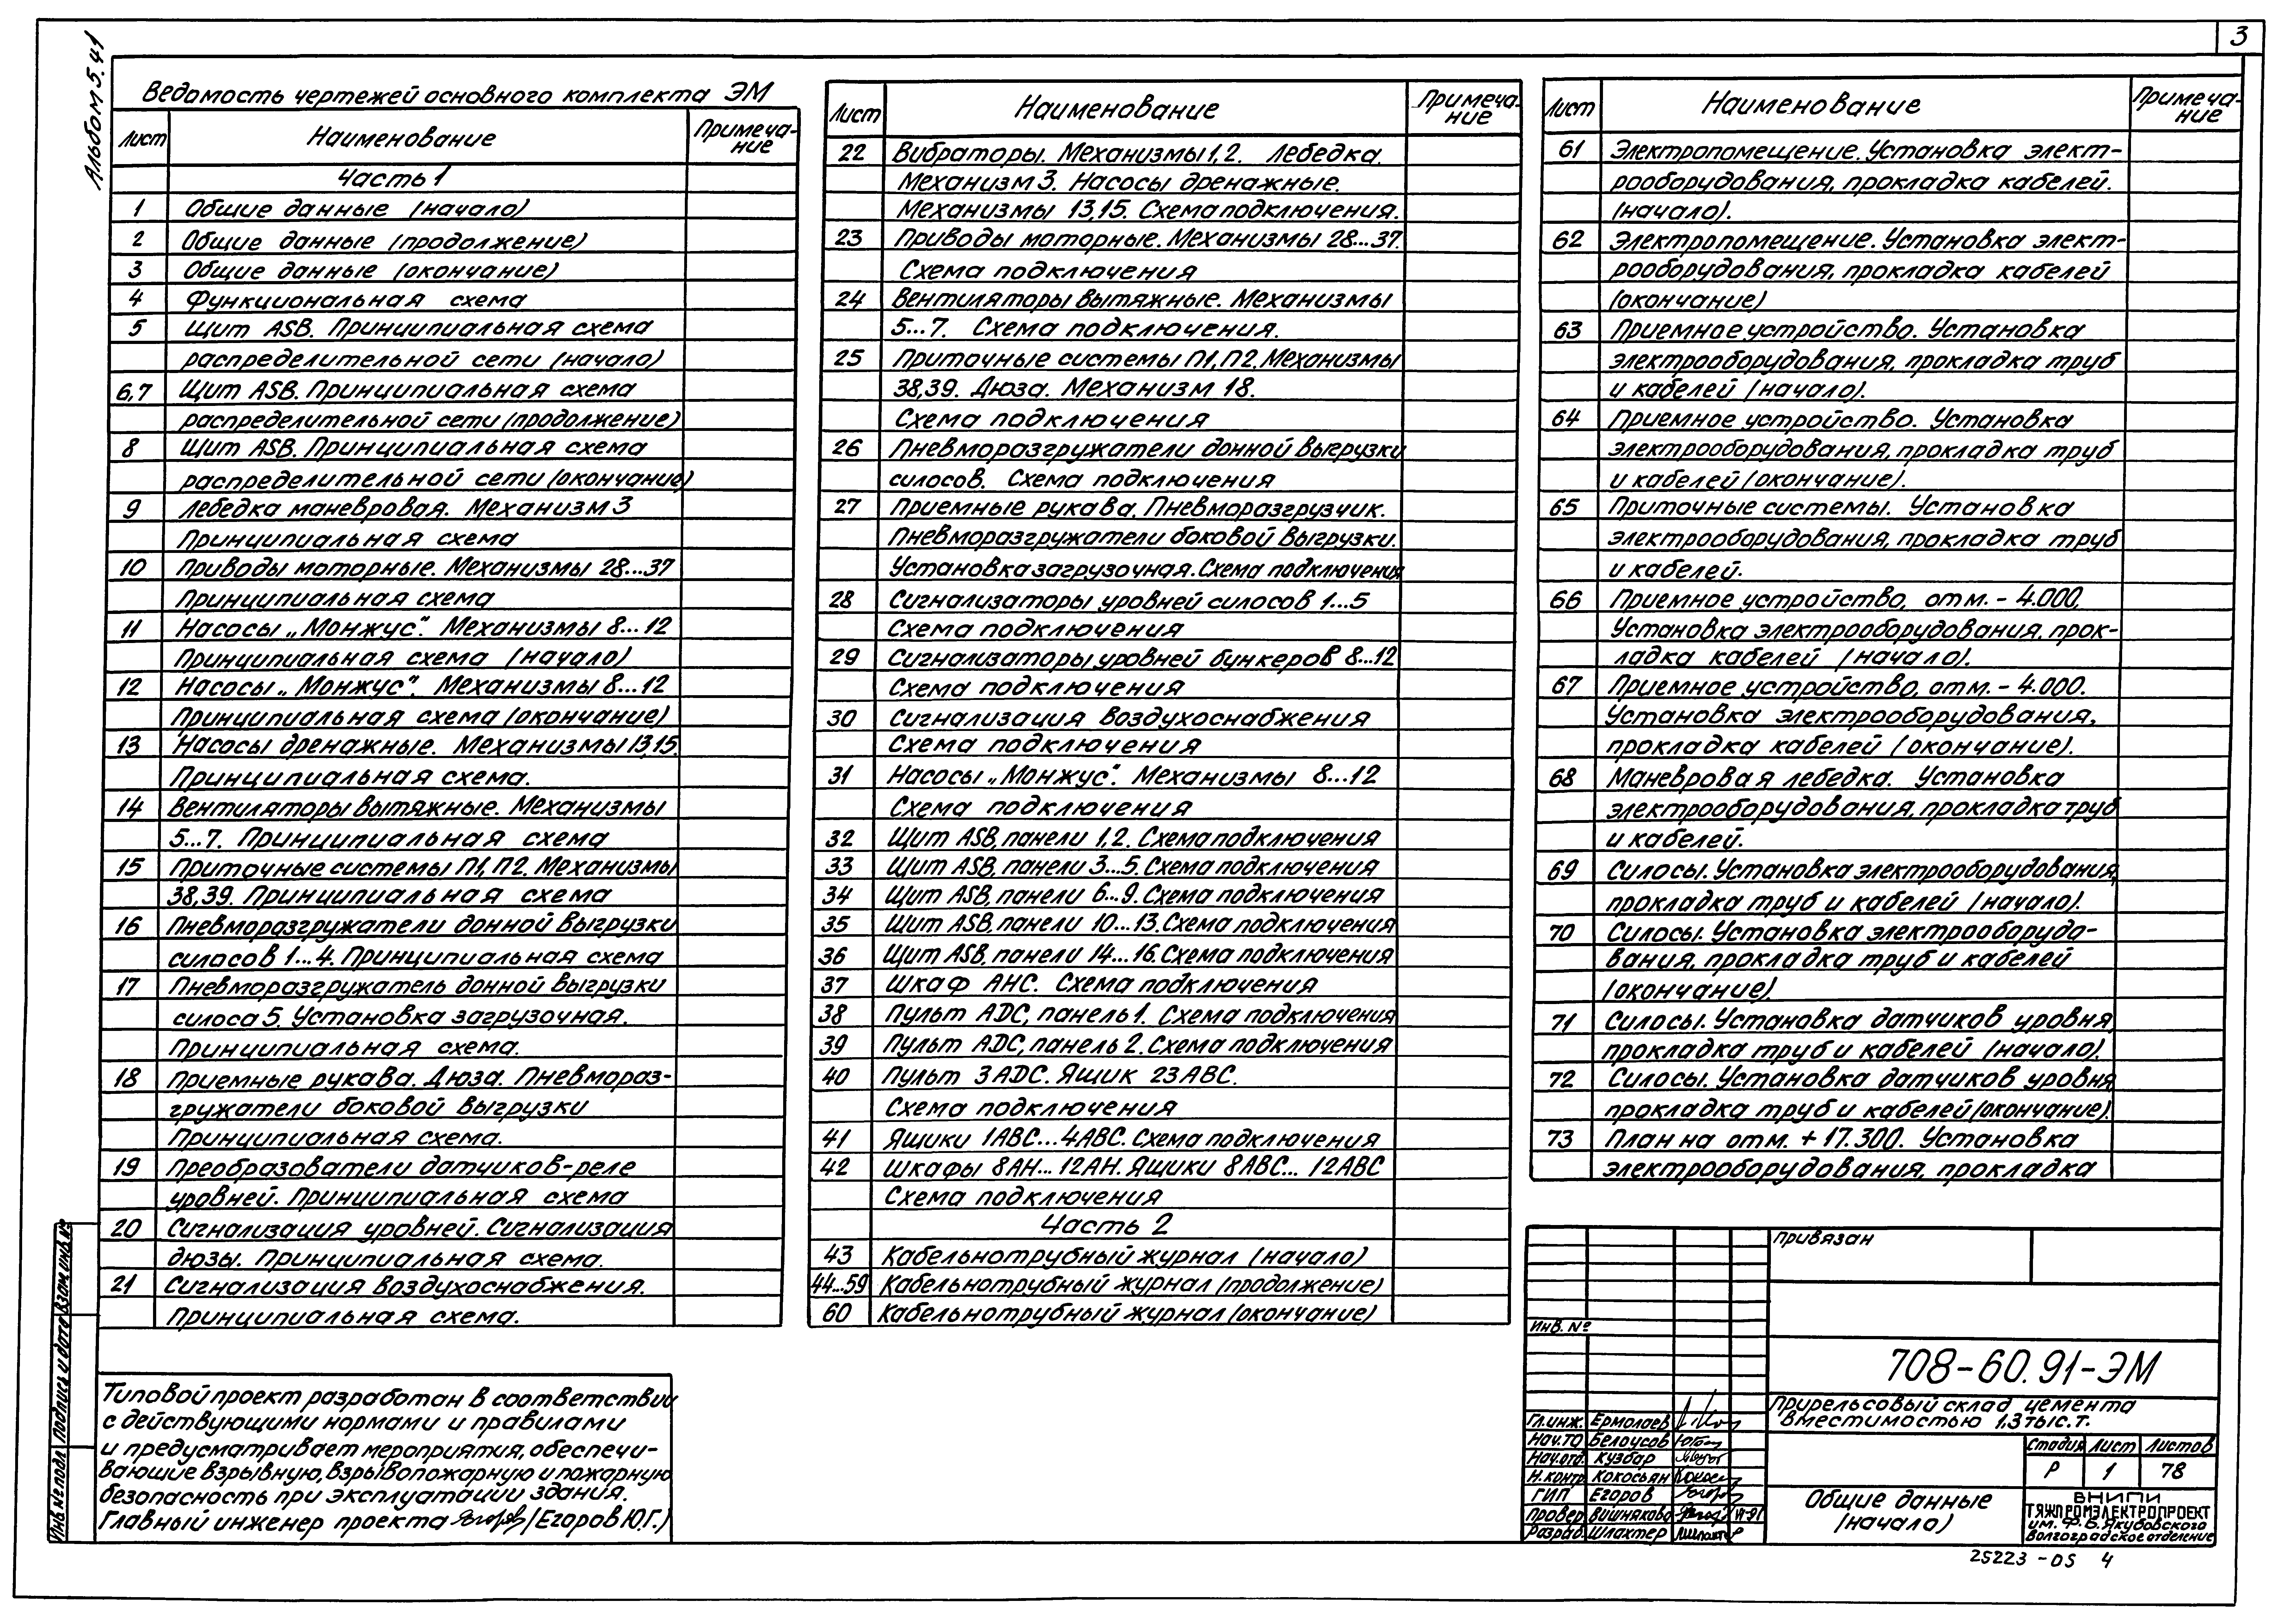 3
Альбом 5.41
Ведомость чертежей основного комплекта ЭМ
Лист Наименование Примеча-
ние
Часть 1
1 Общие данные (начало)
2 Общие данные (продолжение)
3 Общие данные (окончание)
4 Функциональная схема
5 Щит ASB. Принципиальная схема
распределительной сети (начало)
6,7 Щит ASB. Принципиальная схема
распределительной сети (продолжение)
8 Щит ASB. Принципиальная схема
распределительной сети (окончание)
9 Лебедка маневровая. Механизм 3
Принципиальная схема
10 Приводы моторные. Механизмы 28...37
Принципиальная схема
11 Насосы „Монжус". Механизмы 8...12
Принципиальная схема (начало)
12 Насосы „Монжус". Механизмы 8...12
Принципиальная схема (окончание)
13 Насосы дренажные. Механизмы 13,15.
Принципиальная схема.
14 Вентиляторы вытяжные. Механизмы
5...7. Принципиальная схема
15 Приточные системы П1, П2. Механизмы
38,39. Принципиальная схема
16 Пневморазгружатели донной выгрузки
силосов 1...4. Принципиальная схема
17 Пневморазгружатель донной выгрузки
силоса 5. Установка загрузочная.
Принципиальная схема.
18 Приемные рукава. Дюза. Пневмораз-
гружатели боковой выгрузки
Принципиальная схема.
19 Преобразователи датчиков-реле
уровней. Принципиальная схема
20 Сигнализация уровней. Сигнализация
дюзы. Принципиальная схема.
21 Сигнализация воздухоснабжения.
Принципиальная схема.
Лист Наименование Примеча-
ние
22 Вибраторы. Механизмы 1,2. Лебедка.
Механизм 3. Насосы дренажные.
Механизмы 13,15. Схема подключения.
23 Приводы моторные. Механизмы 28...37.
Схема подключения
24 Вентиляторы вытяжные. Механизмы
5...7. Схема подключения.
25 Приточные системы П1, П2. Механизмы
38,39. Дюза. Механизм 18.
Схема подключения
26 Пневморазгружатели донной выгрузки
силосов. Схема подключения
27 Приемные рукава. Пневморазгрузчик.
Пневморазгружатели боковой выгрузки.
Установка загрузочная. Схема подключения
28 Сигнализаторы уровней силосов 1...5
Схема подключения
29 Сигнализаторы уровней бункеров 8...12
Схема подключения
30 Сигнализация воздухоснабжения
Схема подключения
31 Насосы „Монжус". Механизмы 8...12
Схема подключения
32 Щит ASB, панели 1,2. Схема подключения
33 Щит ASB, панели 3...5. Схема подключения
34 Щит ASB, панели 6...9. Схема подключения
35 Щит ASB, панели 10...13. Схема подключения
36 Щит ASB, панели 14...16. Схема подключения
37 Шкаф АНС. Схема подключения
38 Пульт ADC, панель 1. Схема подключения
39 Пульт ADC, панель 2. Схема подключения
40 Пульт 3ADC. Ящик 23ABC.
Схема подключения
41 Ящики 1ABC...4ABC. Схема подключения
42 Шкафы 8АН...12АН. Ящики 8ABC...12ABC
Схема подключения
Часть 2
43 Кабельнотрубный журнал (начало)
44...59 Кабельнотрубный журнал (продолжение)
60 Кабельнотрубный журнал (окончание)
Лист Наименование Примеча-
ние
61 Электропомещение. Установка элект-
рооборудования, прокладка кабелей.
(начало).
62 Электропомещение. Установка элект-
рооборудования, прокладка кабелей
(окончание)
63 Приемное устройство. Установка
электрооборудования, прокладка труб
и кабелей (начало).
64 Приемное устройство. Установка
электрооборудования, прокладка труб
и кабелей (окончание).
65 Приточные системы. Установка
электрооборудования, прокладка труб
и кабелей.
66 Приемное устройство, отм. - 4.000,
Установка электрооборудования, прок-
ладка кабелей (начало).
67 Приемное устройство, отм. - 4.000.
Установка электрооборудования,
прокладка кабелей (окончание).
68 Маневровая лебедка. Установка
электрооборудования, прокладка труб
и кабелей.
69 Силосы. Установка электрооборудования,
прокладка труб и кабелей (начало).
70 Силосы. Установка электрооборудо-
вания, прокладка труб и кабелей
(окончание).
71 Силосы. Установка датчиков уровня,
прокладка труб и кабелей (начало).
72 Силосы. Установка датчиков уровня,
прокладка труб и кабелей (окончание).
73 План на отм. + 17.300. Установка
электрооборудования, прокладка
Типовой проект разработан в соответствии
с действующими нормами и правилами
и предусматривает мероприятия, обеспечи-
вающие взрывную, взрывопожарную и пожарную
безопасность при эксплуатации здания.
Главный инженер проекта (Егоров Ю.Г.)
Инв № подл Подпись и дата Взам. инв. №
Привязан
Инв. №
708-60.91-ЭМ
Прирельсовый склад цемента
вместимостью 1,3 тыс. т.
Гл. инж. Ермолаев
Нач. ТО Белоусов
Нач. отд. Кузбар
Н. контр. Кокосьян
ГИП Егоров
Провер. Вишнякова
Разраб. Шлактер
Стадия Лист Листов
Р 1 78
Общие данные
(начало)
ВНИПИ
ТЯЖПРОМЭЛЕКТРОПРОЕКТ
им. Ф.Б. Якубовского
Волгоградское отделение
25223-05 4